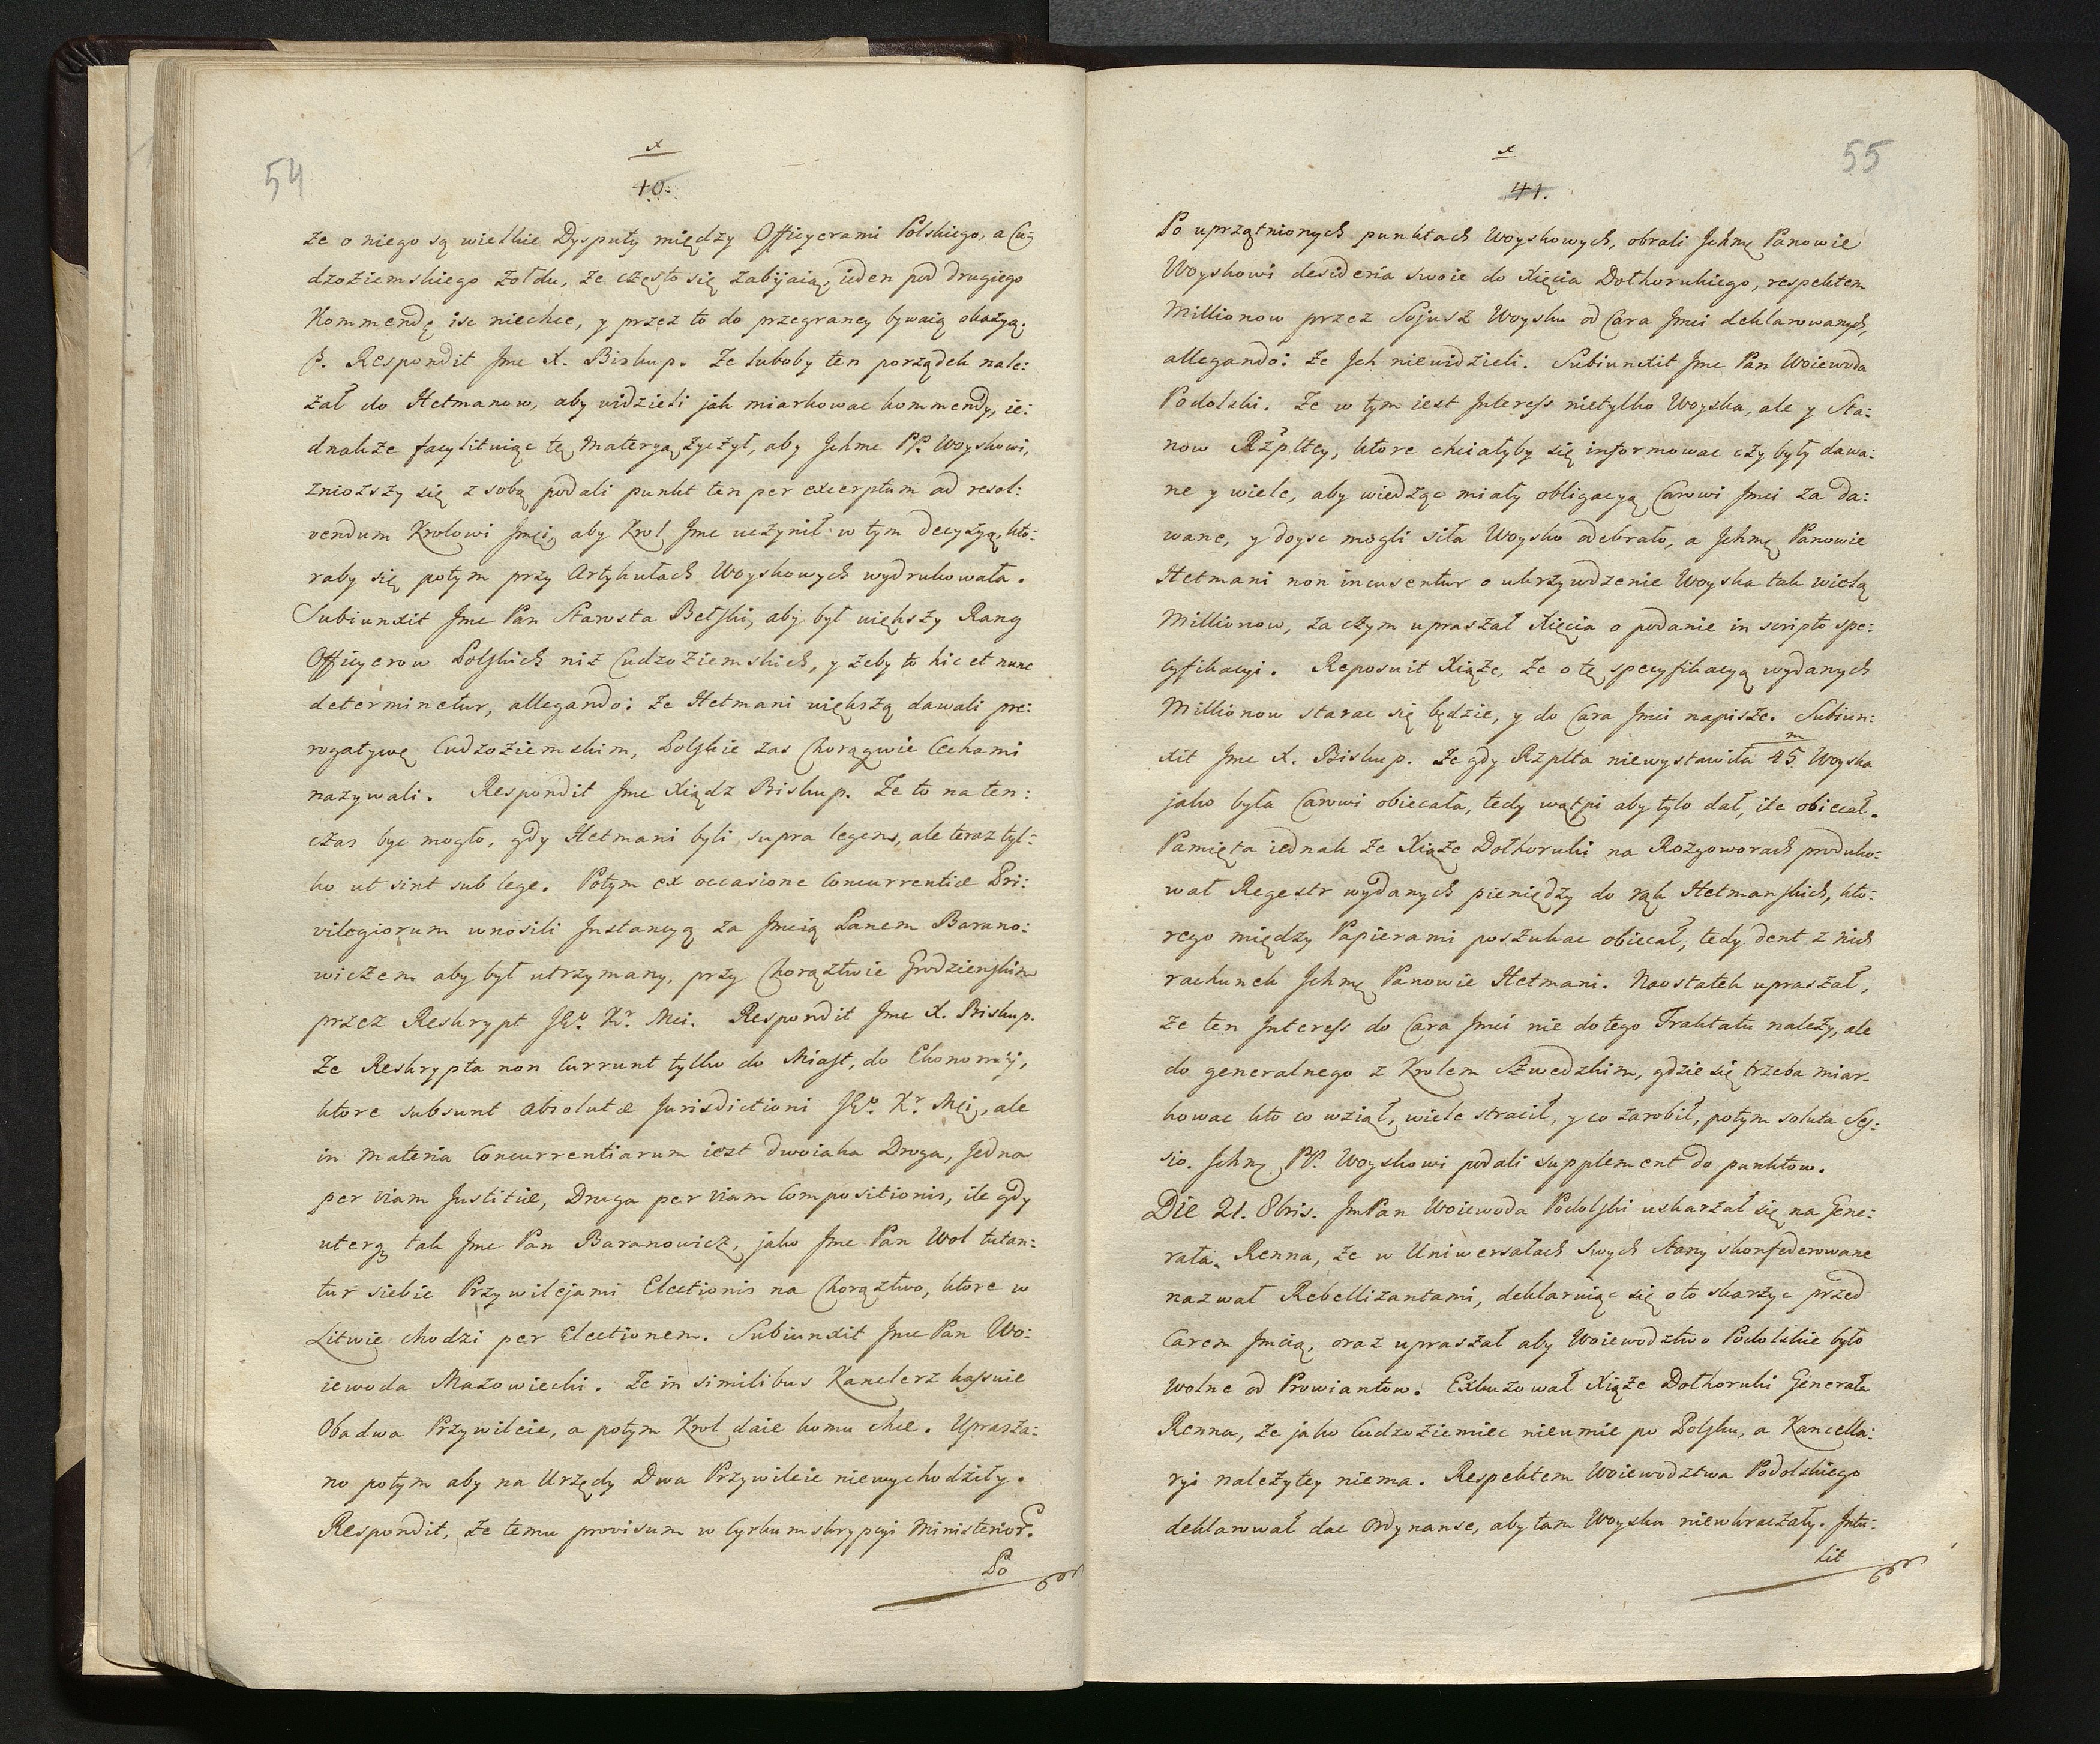 54
x
40.
że o niego są wielkie Dysputy między Officyerami Polskiego, a Cu:
dzoziemskiego żołdu, że często się zabijaią, ieden pod drugiego
Kommendę isc niechce, y przez to do przegraney bywaią okazyą.
Respondit Jmc X. Biskup. Że luboby ten porządek nale:
żał do Hetmanow, aby widzieli jak miarkowac kommendy, ie:
dnakże facylituiąc tę Materyą życzył, aby Jchmc PP. Woyskowi,
zniozszy się z sobą podali punkt ten per excerptum ad resol:
vendum Krolowi Jmci, aby Krol Jmc uczynił w tym decyzyą, kto:
raby się potym przy Artykułach Woyskowych wydrukowała.
Subiunxit Jmc Pan Starosta Bełski, aby był większy Rang
Officyerow Polskich niż Cudzoziemskich, y żeby to hic et nunc
determinetur, allegando: że Hetmani większą dawali pre:
rogatywę Cudzoziemskim, Polskie zas Chorągwie Cechami
nazywali. Respondit Jmc Xiądz Biskup. Że to na ten:
czas byc mogło, gdy Hetmani byli supra legem, ale teraz tyl:
ko ut sint sub lege. Potym ex occasione Concurrentiæ Pri:
vilegiorum wnosili Jnstancyą za Jmcią Panem Barano:
wiczem aby był utrzymany, przy Chorąztwie Grodzienskim
przez Reskrypt JKo. Kr. Mci. Respondit Jmc X. Biskup.
Że Reskrypta non Currunt tylko do Miast, do Ekonomij,
ktore subsunt absolutæ Jurisdictioni JKo. Kr. Mci, ale
in materia Concurrentiarum iest dwoiaka Droga, Jedna
per viam Justitiæ, Druga per viam Compositionis, ile gdy
uterq tak Jmc Pan Baranowicz, jako Jmc Pan Wol tutan:
tur siebie Przywilejami Electionis na Chorąztwo, ktore w
Litwie chodzi per Electionem. Subiunxit Jmc Pan Wo:
iewoda Mazowiecki. Że in similibus Kanclerz kassuie
Obadwa Przywileie, a potym Krol daie komu chce. Uprasza:
no potym aby na Urzędy Dwa Przywileie niewychodziły.
Respondit, że temu provisum w Cyrkumskrypcyi Ministerior.
Po
55
x
41.
Po uprzątnionych punktach Woyskowych, obrali Jchmę Panowie
Woyskowi desideria swoie do Xięcia Dołhorukiego, respektem
Millionow przez Sojusz Woysku od Cara Jmci deklarowanych,
allegando: że Jch niewidzieli. Subiunxit Jmc Pan Woiewoda
Podolski. Że w tym iest Jnteress nietylko Woyska, ale y Sta:
now Rzpltey, ktore chciałyby się informowac czy były dawa:
ne y wiele, aby wiedząc miały obligacyą Carowi Jmci za da:
wane, y doysc mogli siła Woysko odebrało, a Jchmę Panowie
Hetmani non incusentur o ukrzywdzenie Woyska tak wielą
Millionow, za czym upraszał Xięcia o podanie in scripto spe:
cyfikacyi. Reposuit Xiąże, że o tę specyfikacyą wydanych
Millionow starac się będzie, y do Cara Jmci napisze. Subiun:
xit Jmc X. Biskup. Że gdy Rzplta niewystawiła 45 m Woyska
jako była Carowi obiecała, tedy wątpi aby tylo dał, ile obiecał.
Pamięta iednak że Xiąże Dołhoruki na Rozgoworach produko:
wał Regestr wydanych pieniędzy do rąk Hetmanskich, kto:
rego między Papierami poszukac obiecał, tedy dent z nich
rachunek Jchmę Panowie Hetmani. Naostatek upraszał,
że ten Jnteress do Cara Jmci nie do tego Traktatu należy, ale
do generalnego z Krolem Szwedzkim, gdzie się trzeba miar:
kowac kto co wziął, wiele stracił, y co zarobił, potym soluta Ses:
sio. Jchmę PP. Woyskowi podali supplement do punktow.
Die 21. 8bris. JmPan Woiewoda Podolski uskarzał się na Gene:
rała Renna, że w Uniwersałach swych Stany skonfederowane
nazwał Rebellizantami, deklaruiąc się o to skarżyc przed
Carem Jmcią, oraz upraszał aby Woiewodztwo Podolskie było
wolne od Prowiantow. Exkuzował Xiąże Dołhoruki Generała
Renna, że jako Cudzoziemiec nieumie po Polsku, a Kancella:
ryi należytey niema. Respektem Woiewodztwa Podolskiego
deklarował dac Ordynanse, aby tam Woyska niewkraczały. Jntu:
lit